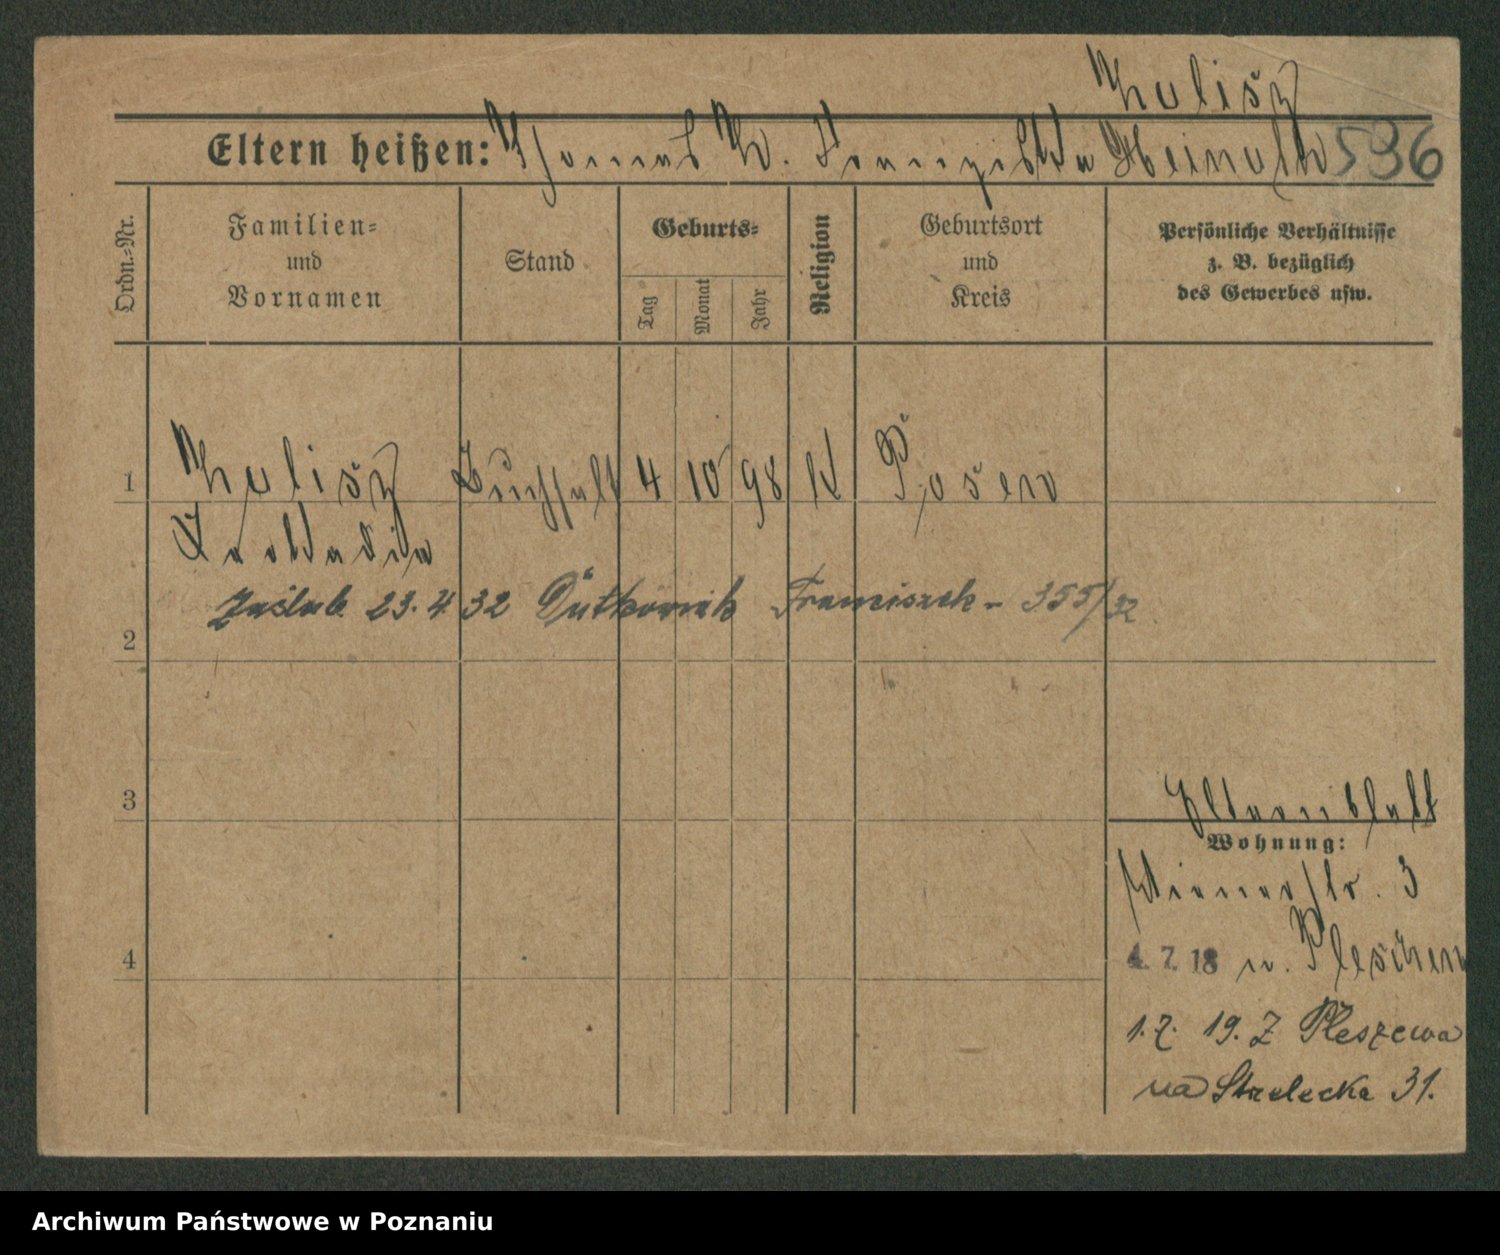 Kulisz
Eltern heißen: Thomas K. Franziska Heinolk 536
Ordn.-Nr.
Familien- und Vornamen
Stand
Geburts-
Tag Monat Jahr
Religion
Geburtsort und Kreis
Persönliche Verhältnisse z. B. bezüglich des Gewerbes usw.
1 Kulisz Buchhalt 4 10 98 K Posen
zaślub 23.4 32 Dutkowiak Franciszek - 355/32
2
3
Elternblatt
Wohnung:
Wienerstr. 3
4 4. 7. 18 n. Pleschen
1.7. 19. Z Pleszewa
na Strzelecka 31.
Archiwum Państwowe w Poznaniu